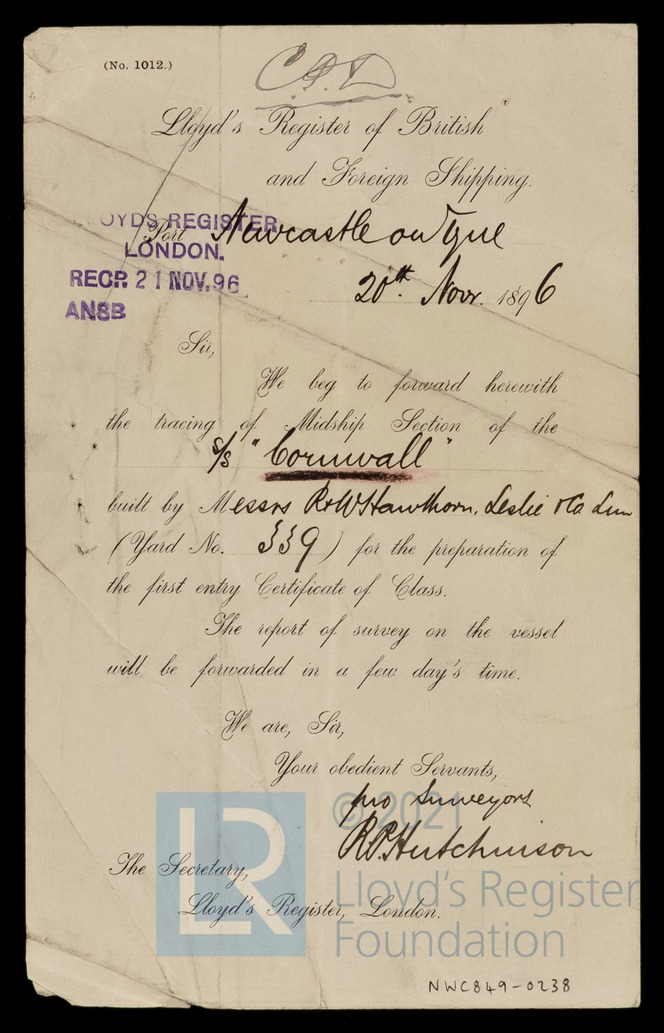 (No. 1012.)
Lloyd's Register of British
and Foreign Shipping.
LLOYDS REGISTER
LONDON.
RECP. 21 NOV. 96
ANSB
Port Newcastle on Tyne
20th. Novr. 1896
Sir,
We beg to forward herewith
the tracing of Midship Section of the
s/s "Cornwall"
built by Messrs R & W Hawthorn, Leslie & Co Lim
(Yard No. 339) for the preparation of
the first entry Certificate of Class.
The report of survey on the vessel
will be forwarded in a few day's time.
We are, Sir,
Your obedient Servants,
pro Surveyors
R.P. Hutchinson
The Secretary,
Lloyd's Register, London.
LR
© 2021
Lloyd's Register
Foundation
NWC849-0238